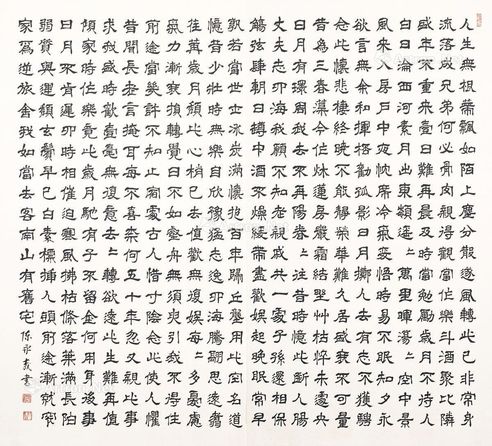 人生無根蒂飄如陌上塵分散逐風轉此已非常身
流落成兄弟何必骨肉親得歡當作樂斗酒聚比隣
盛年不重來一日難再晨及時當勉勵歲月不待人
白日淪西河素月出東嶺遙〻萬里暉蕩〻空中景
風來入房戶中夜枕席冷氣變悟時易不眠知夕永
欲言無余和揮杯勸孤影日月擲人去有志不獲騁
念此懷悲悽終曉不能靜榮華難久居盛衰不可量
昔為三春蕖今作秋蓮房嚴霜結野草枯悴未遽央
日月有環周我去不再陽眷〻往昔時憶此斷人腸
丈夫志四海我願不知老親戚共一處子孫還相保
觴弦肆朝日樽中酒不燥緩帶盡歡娛起晚眠常早
孰若當世士冰炭滿懷抱百年歸丘壟用此空名道
憶昔少壯時無樂自欣豫猛志逸四海騫翮思遠翥
荏苒歲月頹此心稍已去值歡無復娛每〻多憂慮
氣力漸衰損轉覺日不如壑舟無須臾引我不得住
前途當幾許不知止泊處古人惜寸陰念此使人懼
昔聞長老言掩耳每不喜奈何五十年忽又親此事
求我盛時歡一毫無復意去〻轉欲遠此生難再值
傾家時作樂竟此歲月馳有子不留金何用身後事
日月不肯遲四時相催迫寒風拂枯條落葉滿長陌
弱質與運頹玄鬢早已白素標插人頭前途漸就窄
家為逆旅舍我如當去客南山有舊宅 陳永義書